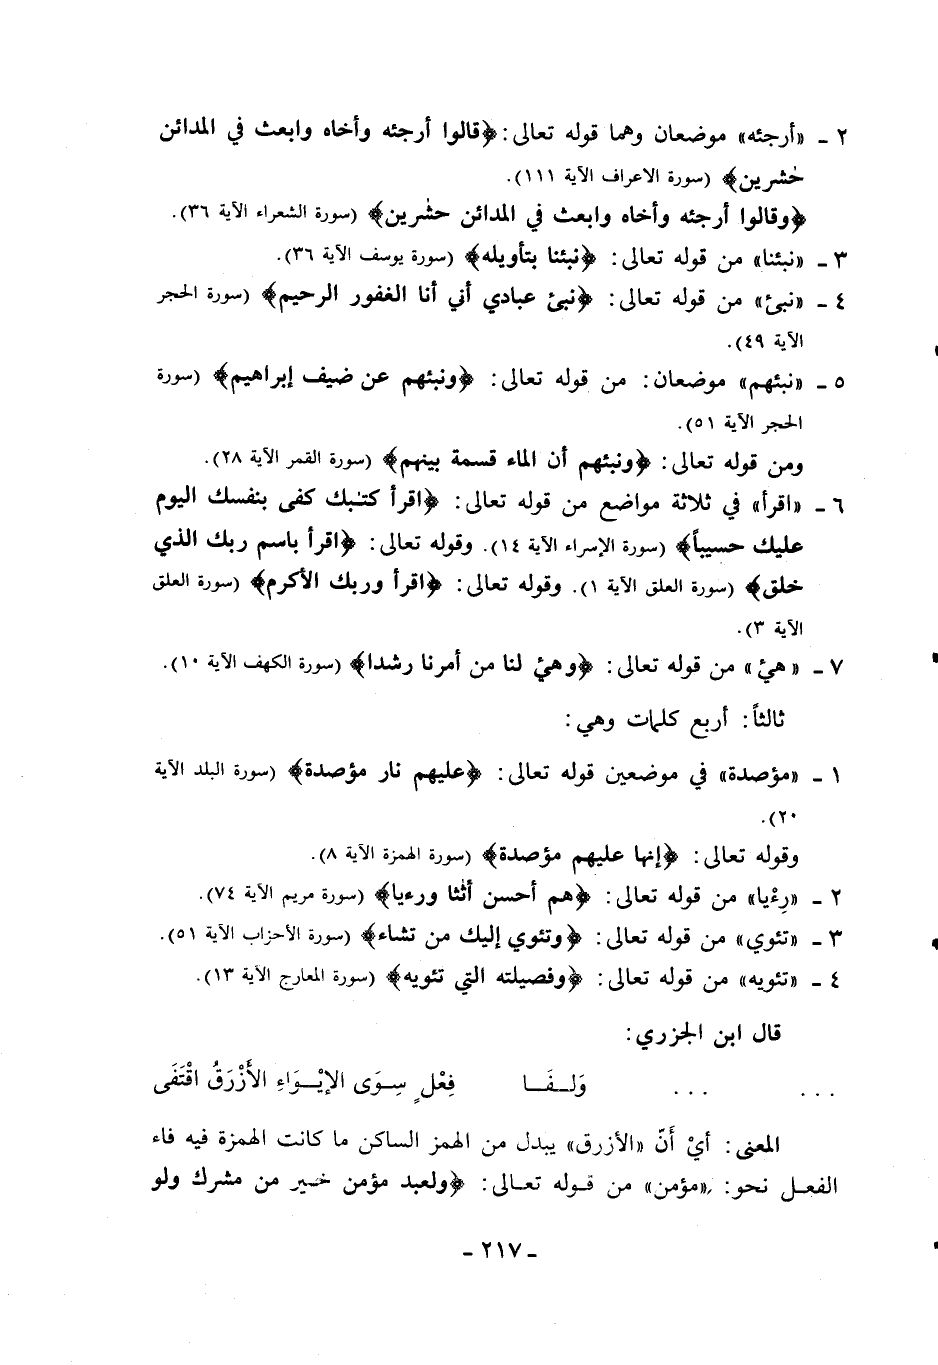 ٢ ـ «أرجئه» موضعان وهما قوله تعالى: ﴿قالوا أرجئه وأخاه وابعث في المدائن
حٰشرين﴾ (سورة الاعراف الآية ١١١).
﴿وقالوا أرجئه وأخاه وابعث في المدائن حٰشرين﴾ (سورة الشعراء الآية ٣٦).
٣ ـ «نبئنا» من قوله تعالى: ﴿نبئنا بتأويله﴾ (سورة يوسف الآية ٣٦).
٤ ـ «نبئ» من قوله تعالى: ﴿نبئ عبادي أني أنا الغفور الرحيم﴾ (سورة الحجر
الآية ٤٩).
٥ ـ «نبئهم» موضعان: من قوله تعالى: ﴿ونبئهم عن ضيف إبراهيم﴾ (سورة
الحجر الآية ٥١).
ومن قوله تعالى: ﴿ونبئهم أن الماء قسمة بينهم﴾ (سورة القمر الآية ٢٨).
٦ ـ «اقرأ» في ثلاثة مواضع من قوله تعالى: ﴿اقرأ كتٰبك كفى بنفسك اليوم
عليك حسيباً﴾ (سورة الإسراء الآية ١٤). وقوله تعالى: ﴿اقرأ باسم ربك الذي
خلق﴾ (سورة العلق الآية ١). وقوله تعالى: ﴿اقرأ وربك الأكرم﴾ (سورة العلق
الآية ٣).
٧ ـ «هيئ» من قوله تعالى: ﴿وهيئ لنا من أمرنا رشدا﴾ (سورة الكهف الآية ١٠).
ثالثاً: أربع كلمات وهي:
١ ـ «مؤصدة» في موضعين قوله تعالى: ﴿عليهم نار مؤصدة﴾ (سورة البلد الآية
٢٠).
وقوله تعالى: ﴿إنها عليهم مؤصدة﴾ (سورة الهمزة الآية ٨).
٢ ـ «رِءْيا» من قوله تعالى: ﴿هم أحسن أثٰثا ورءيا﴾ (سورة مريم الآية ٧٤).
٣ ـ «تئوي» من قوله تعالى: ﴿وتئوي إليك من تشاء﴾ (سورة الأحزاب الآية ٥١).
٤ ـ «تئويه» من قوله تعالى: ﴿وفصيلته التي تئويه﴾ (سورة المعارج الآية ١٣).
قال ابن الجزري:
... ... وَلـفَـا فِعْلٍ سِـوَى الإيْـوَاءِ الأَزْرَقُ اقْتَفَى
المعنى: أيْ أنّ «الأزرق» يبدل من الهمز الساكن ما كانت الهمزة فيه فاء
الفعل نحو: «مؤمن» من قوله تعالى: ﴿ولعبد مؤمن خير من مشرك ولو
ـ ٢١٧ ـ